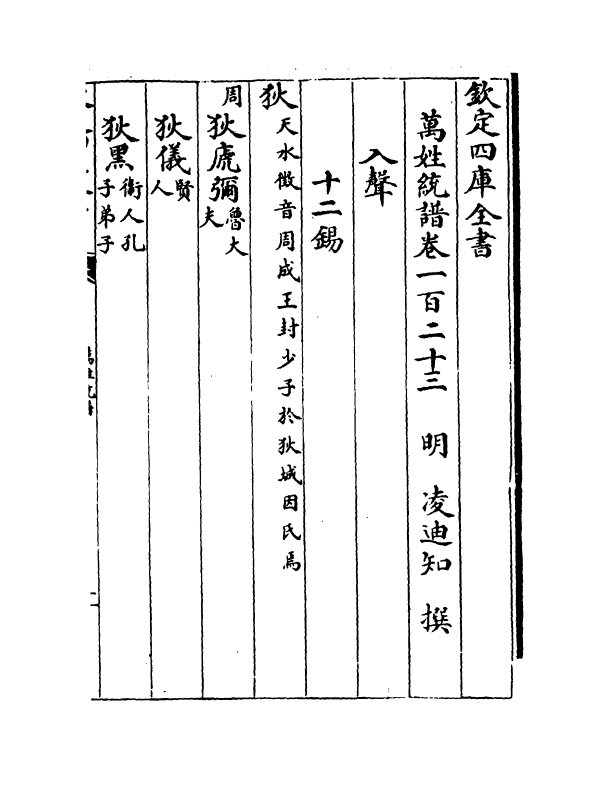 欽定四庫全書
萬姓統譜卷一百二十三　明　凌迪知　撰
入聲
十二錫
狄天水徵音周成王封少子於狄城因氏焉
周狄虒彌魯大夫
狄儀賢人
狄黑衛人孔子弟子